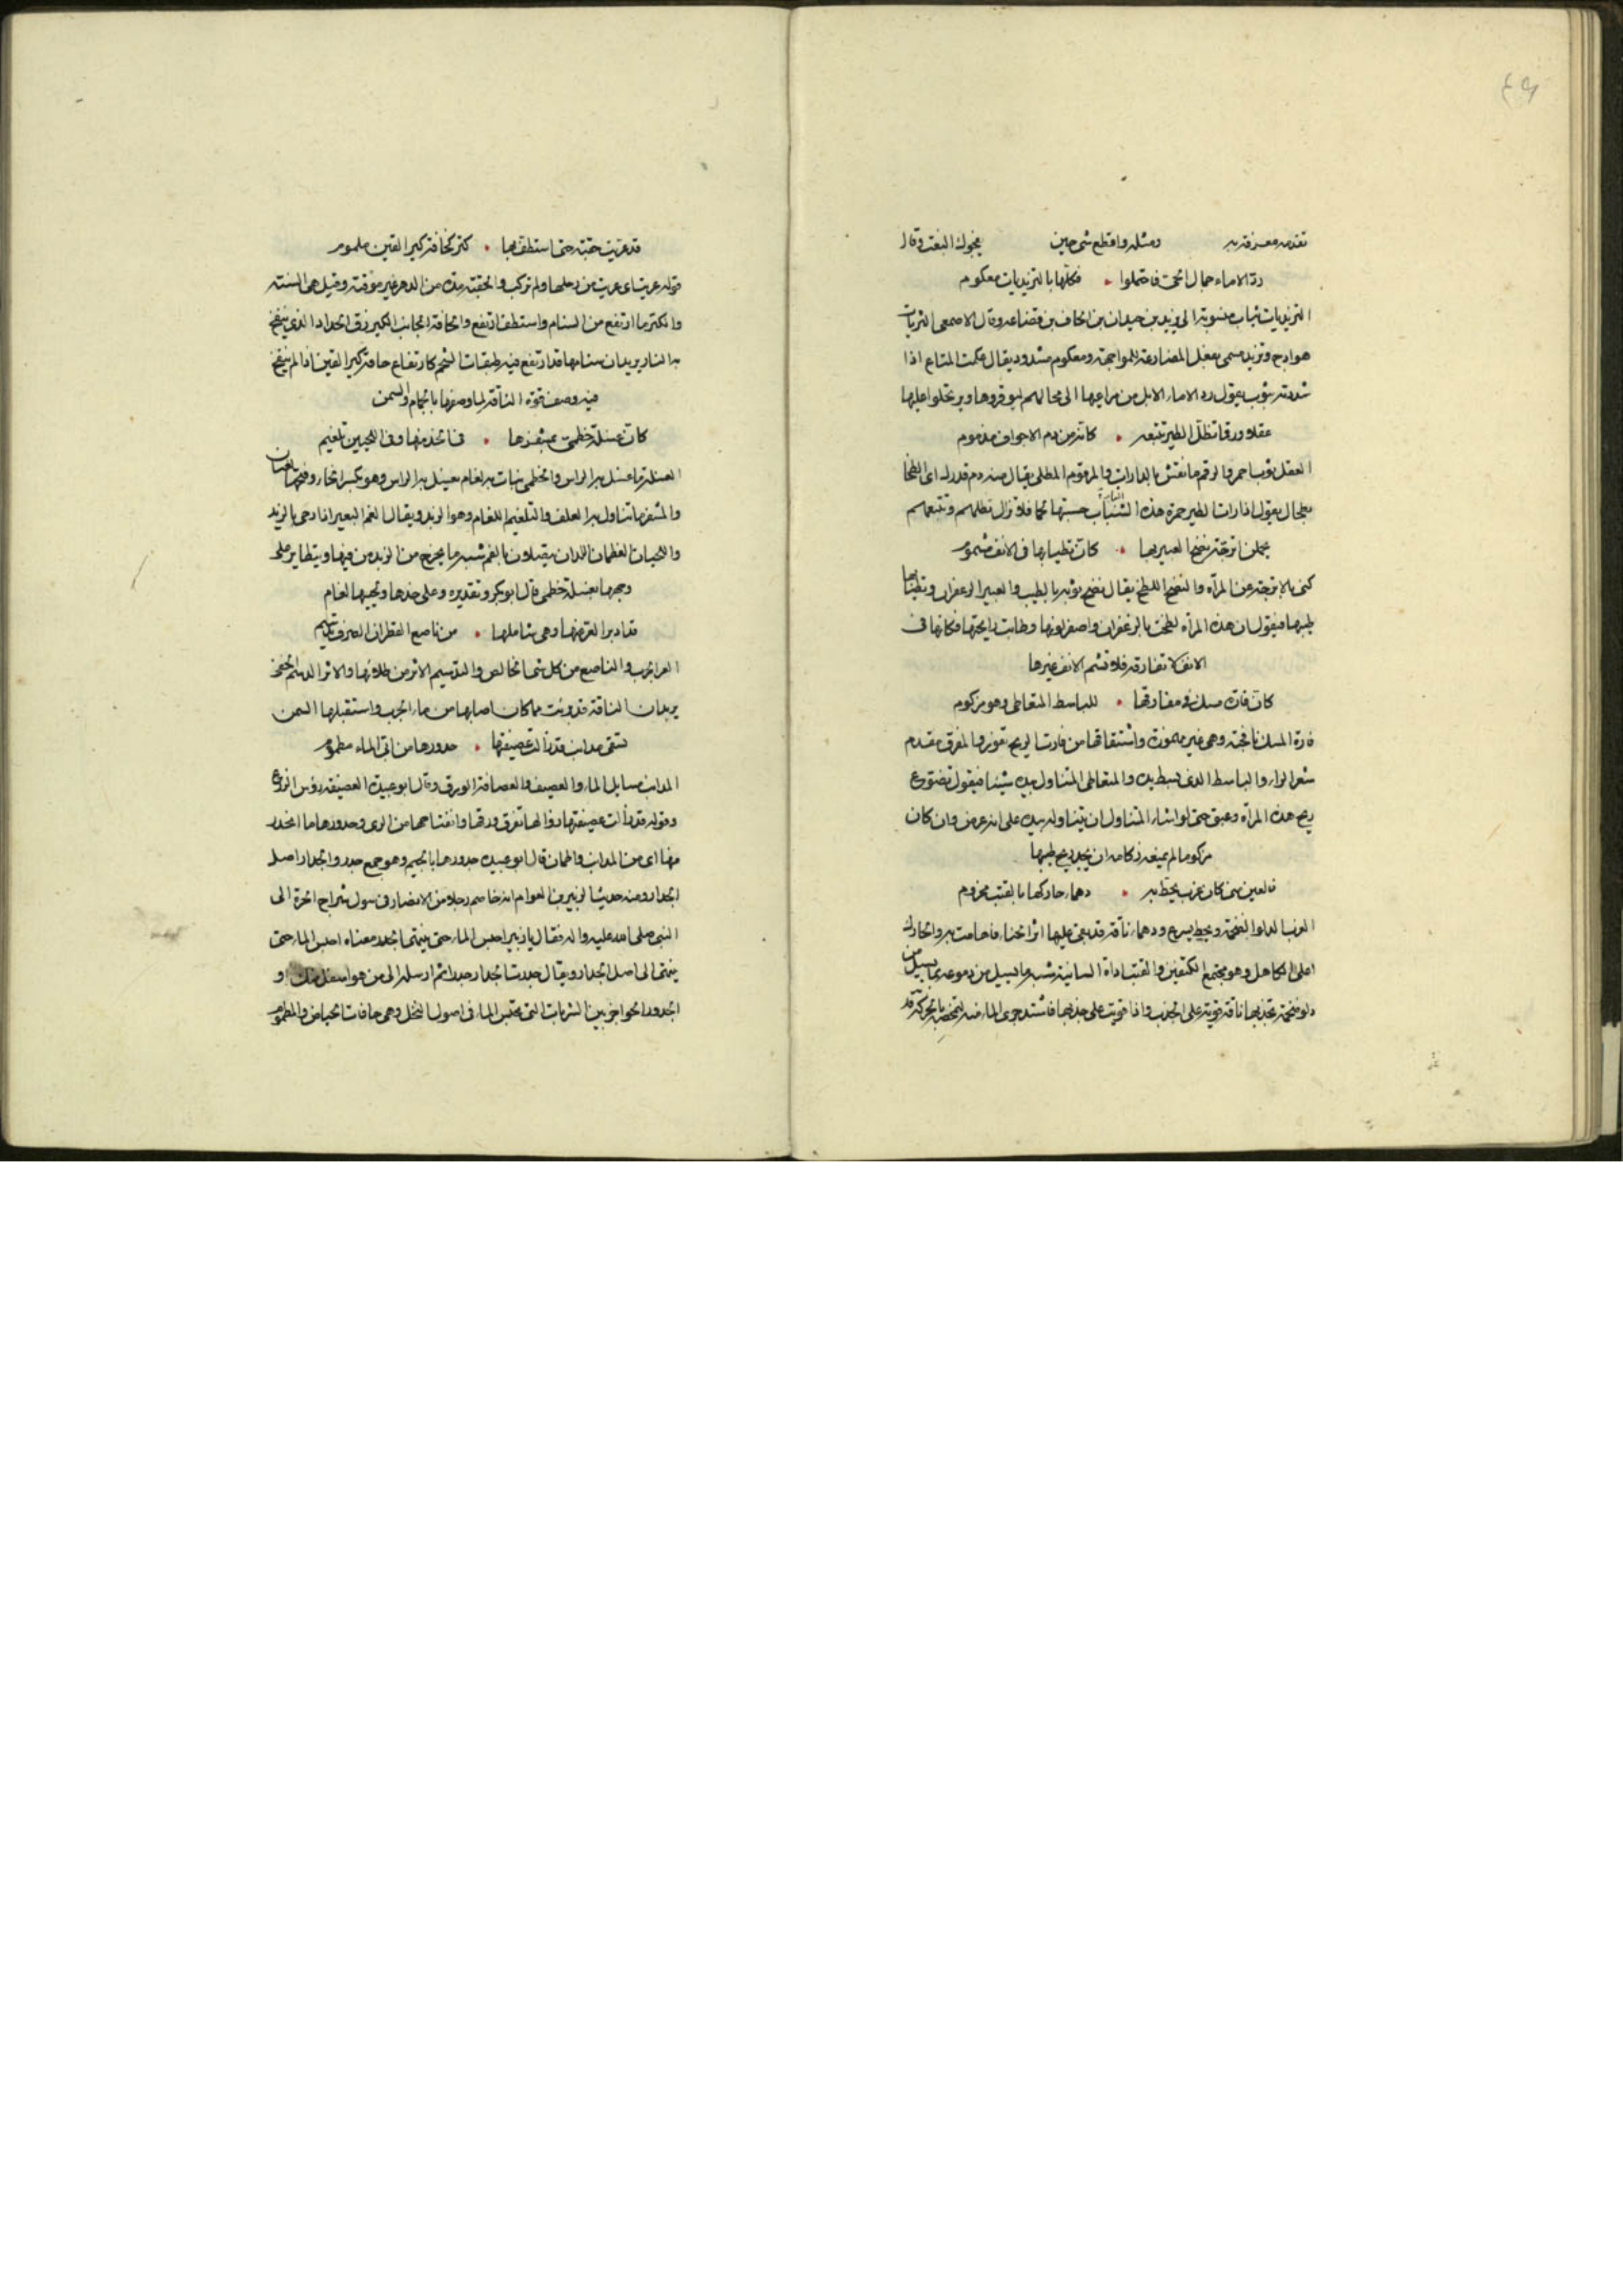 ٤٩
تقدمه معرفة به ومثله وافظع شئ حين يفجوك البغت وقال
ردّ الاماء جمال الحى فاحتملوا فكلها بالتزيديات معكوم
التزيديات ثياب منسوبة الى يزيد بن حيدان بن الحاف بن قضاعه وقال الاصمعى التزيديات
هوادج وتزيد مسمى بفعل المضارعة ومعكوم مشدود يقال عكمت المتاع اذا
شددته بثوب يقول رد الاماء الابل من مراعيها الى محالهم ليوقروها ويرتحلوا عليها
عقلا ورقما تظل الطير تتبعه كانه من دم الاجواف مدموم
العقل ثوب احمر والرقم ما نقش بالدارات والمدموم المطلى يقال منه دم قدرك اى اطلها
بطحال يقول اذا رات الطير حمرة هذه الثياب حسبتها لحما فلا تزال تظلهم وتتبعهم
يحملن اترجة نضخ العبير بها كان تطيابها فى الانف مشموم
كنى بالاترجة عن المرأه والنضخ اللطخ يقال نضخ ثوبه بالطيب والعبير الزعفران وتطيابها
طيبها فيقول ان هذه المرأه لطخت بالزعفران واصفر لونها وطابت رايحتها فكانها فى
الانف لا تفارقه فلا تشم الانف غيرها
كان فارة مسك فى مفارقها للباسط المتعاطى وهو مزكوم
فارة المسك نافجته وهى غير مهموزة واشتقاقها من فارت الريح تفور والمفرق مقدم
شعر الراس والباسط الذى يبسط يده والمتعاطى المتناول بيده شيئا فيقول تضوع
ريح هذه المرأه وعبق حتى لو اشار المتناول ان يتناوله بيده على انه عرض وان كان
مزكوما لم يمنعه زكامه ان يجد ريح طيبها
فالعين منى كان غرب تحط به دهماء حاركها بالقتب مخزوم
الغرب الدلو الضخمة وتحط تسرع ودهماء ناقة قد بقى عليها اثر الهناء والحارك
اعلى الكاهل وهو مجتمع الكتفين والقتب اداة السانية شبه ما يسيل من دموعه بما يسيل من
دلو ضخمة تجذبها ناقة قوية على الجذب واذا قويت على جذبها اشتد جرى الماء
قد عريت حقبة حتى استطف بها كتر كحافة كير القين ملموم
قوله عريت اى عريت من رحلها ولم تركب والحقبة مدة من الدهر غير موقتة وقيل هى السنة
والكتر ما ارتفع من السنام واستطف ارتفع والحافة الجانب والكير زق الحداد الذى ينفخ
به النار يريد ان سنامها قد ارتفع فيه طبقات الشحم كارتفاع حافة كير القين اذا لم ينفخ
فيه وصف قوة الناقة لما وصفها بالجمام والسمن
كان غسلة خطمى بمشفرها فى الخد منها وفى اللحيين تلغيم
الغسلة ما غسل به الراس والخطمى نبات يغسل به الراس وهو بكسر الخاء وفتحها لغتان
والمشفر ما تتناول به العلف والتلغيم اللغام وهو الزبد ويقال لغم البعير اذا رمى بالزبد
واللحيان العظمان اللذان يتصلان بالفم شبه ما يخرج من الزبد من فيها ويتطاير على
وجهها بغسلة خطمى قال ابو بكر وتقديره وعلى خدها ولحييها لغام
قد ادبر العر عنها وهى شاملها من ناصع القطران الصرف تدسيم
العر الجرب والناصع من كل شئ الخالص والتدسيم الاثر من طلائها والاثر الدسم الخفى
يريد ان الناقة قد برئت مما كان اصابها من داء الجرب واستقبلها السمن
تسقى مذانب قد زالت عصيفتها حدورها من اتى الماء مطموم
المذانب مسايل الماء والعصيف والعصافة الورق وقال ابو عبيدة العصيفة رؤس الزرع
وقوله قد زالت عصيفتها زوالها تفرق ورقها وانفتاحها من الرى وحدورها ما انحدر
منها اى من المذانب واطمان قال ابو عبيدة جدورها بالجيم وهو جمع جدر والجدار اصل
الجدار ومنه حديث الزبير بن العوام انه خاصم رجلا من الانصار فى سيول شراج الحرة الى
النبى صلى الله عليه واله فقال يا زبير احبس الماء حتى ينتهى الجدر معناه احبس الماء حتى
ينتهى الى اصل الجدار ويقال جدرت الجدار جدرا ثم ارسله الى من هو اسفل منك او
الجدور الحواجز بين الشربات التى تحبس الماء فى اصول النخل وهى حافات الحياض والمطموم